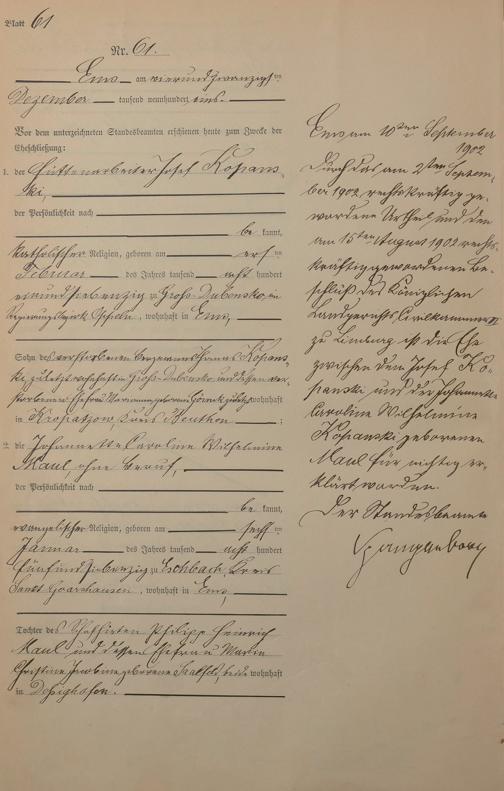 Blatt 61
Nr. 61.
Ems am vierundzwanzigsten
Dezember tausend neunhundert eins.
Vor dem unterzeichneten Standesbeamten erschienen heute zum Zwecke der
Eheschließung:
1. der Hüttenarbeiter Josef Kopans-
ki,
der Persönlichkeit nach
be kannt,
katholischer Religion, geboren am elften
Februar des Jahres tausend acht hundert
siebenzig zu Groß-Dubensko, in
Regierungsbezirk Oppeln, wohnhaft in Ems,
Sohn des verstorbenen Kopans-
ki, zuletzt wohnhaft in Groß-Dubensko und dessen ver-
storbenen Ehefrau geborene zuletzt wohnhaft
in Kreis Beuthen ;
2. die Johannette Caroline Wilhelmine
Maul, ohne Beruf,
der Persönlichkeit nach
be kannt,
evangelischer Religion, geboren am sechsten
Januar des Jahres tausend acht hundert
fünfundsiebenzig zu Eschbach, Kreis
Sanct Goarshausen, wohnhaft in Ems,
Tochter des Philipp Heinrich
Maul und dessen Ehefrau Maria
Christine geborene beide wohnhaft
in .
Ems am 10ten September
1902
Durch das am 2ten Septem-
ber 1902 rechtskräftig ge-
wordene Urtheil und den
am 15ten August 1902 rechts-
kräftig gewordenen Be-
schluß des Königlichen
Landgerichts Civilkammer II
zu Limburg ist die Ehe
zwischen dem Josef Ko-
panski und der Johannette
Caroline Wilhelmine
Kopanski geborenen
Maul für nichtig er-
klärt worden.
Der Standesbeamte